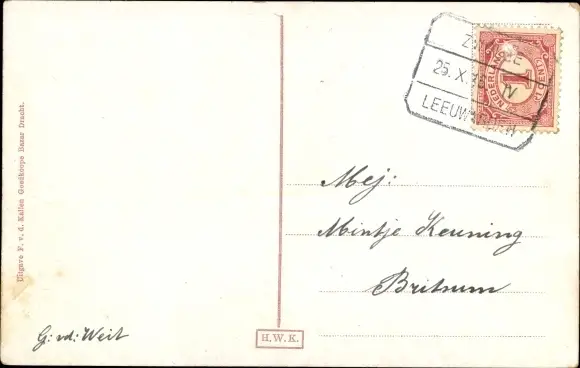 Uitgave F. v. d. Kallen Goedkoope Bazar Dracht.
25. X.
IV
LEEUWARDEN
NEDERLAND
1
CENT
Mej:
Mintje Keuning
Britsum
G: vd: Weit
H.W.K.